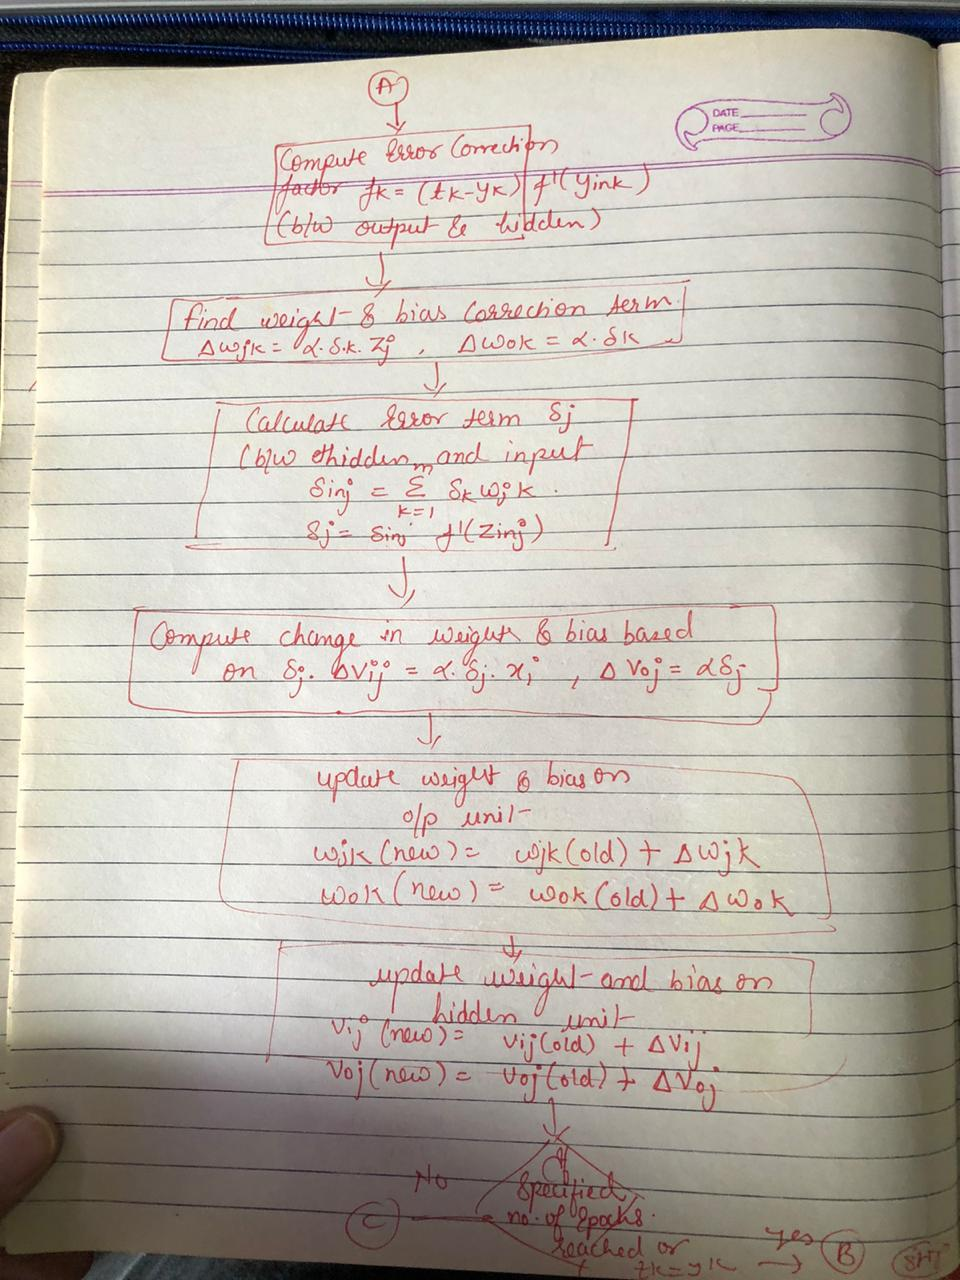 A
DATE
PAGE
Compute Error Correction
factor fk = (tk-yk) f'(yink)
(b/w output & hidden)
find weight & bias correction term.
Δwjk = α.δ.k.Zj , Δwok = α.δk
Calculate Error term δj
(b/w hidden and input
δinj = Σ δk wjk.
m
k=1
δj = δinj f'(Zinj)
Compute change in weight & bias based
on δj. ΔVij = α.δj.xi , ΔVoj = αδj
update weight & bias on
o/p unit
wjk(new) = wjk(old) + Δwjk
wok(new) = wok(old) + Δwok
update weight and bias on
hidden unit
Vij(new) = Vij(old) + ΔVij
Voj(new) = Voj(old) + ΔVoj
If
No Specified
C no. of Epochs.
reached or yes B
tk=yk